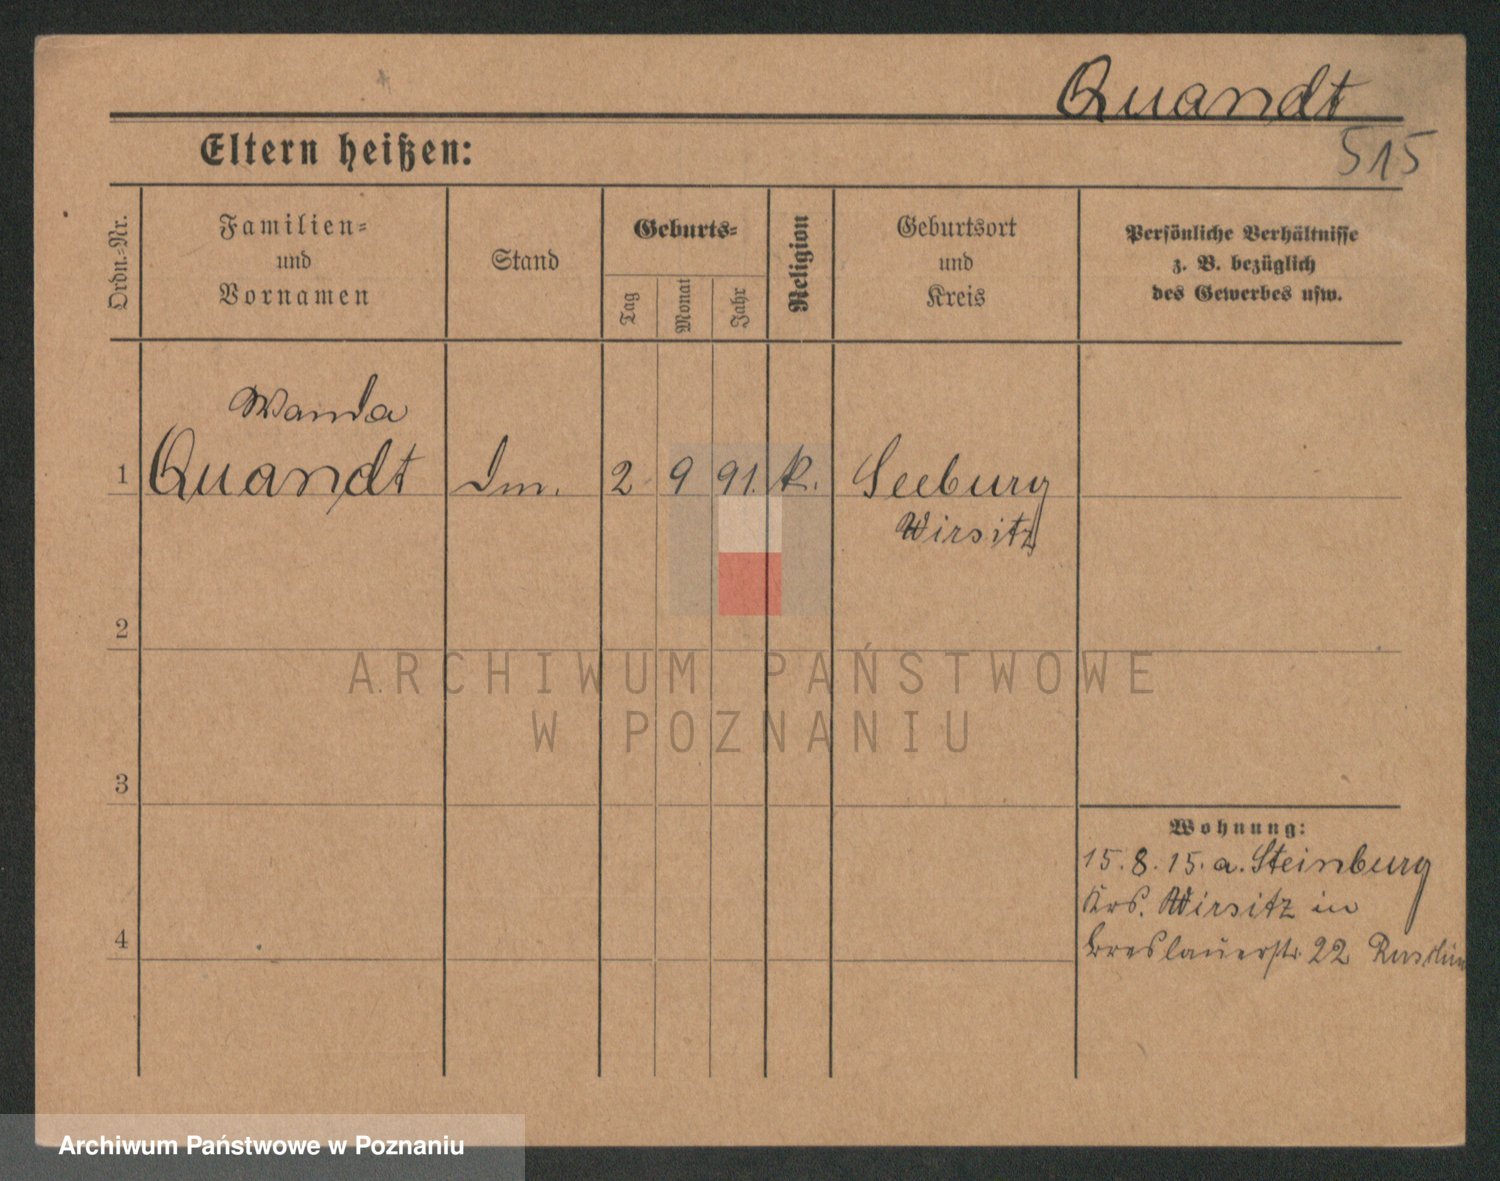 Quandt
515
Eltern heißen:
Ordn.-Nr.
Familien-
und
Vornamen
Stand
Geburts-
Tag
Monat
Jahr
Religion
Geburtsort
und
Kreis
Persönliche Verhältnisse
z. B. bezüglich
des Gewerbes usw.
Wanda
1 Quandt 2 9 91. k. Seeburg
Wirsitz
2
ARCHIWUM PAŃSTWOWE
W POZNANIU
3
Wohnung:
15.8.15. a. Steinburg
Krs. Wirsitz in
Breslauerstr. 22
4
Archiwum Państwowe w Poznaniu